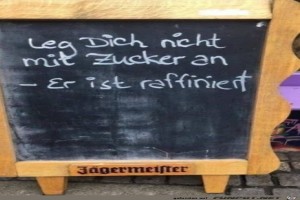 Leg Dich nicht
mit Zucker an
- Er ist raffiniert
Jägermeister